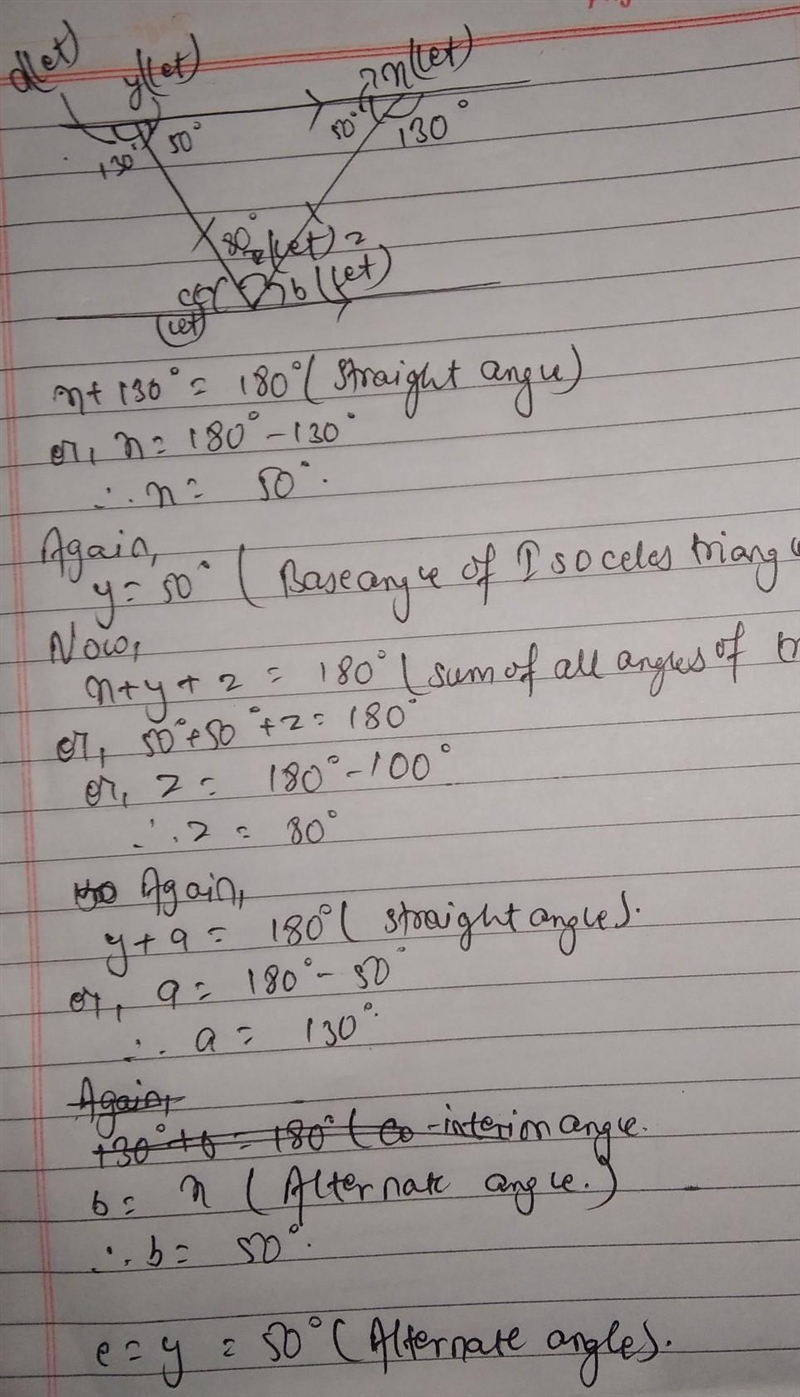 y(let)
x(let)
130° 50°
50° 130°
80° z(let)
b(let)
(let)
x + 130° = 180° (straight angle)
or, x = 180° - 130°
∴ x = 50°.
Again,
y = 50° (Base angle of Isoceles triangle
Now,
x + y + z = 180° (sum of all angles of
or, 50° + 50° + z = 180°
or, z = 180° - 100°
∴ z = 80°
Again,
y + a = 180° (straight angle).
or, a = 180° - 50°
∴ a = 130°.
Again,
130° + b = 180° (Co-interior angle.
b = x (Alternate angle.)
∴ b = 50°.
e = y = 50° (Alternate angles).